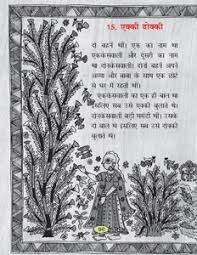 15. एक्की दोक्की
दो बहनें थीं। एक का नाम था
एककेसवाली और दूसरी का नाम
था दोनकेसवाली। दोनों बहनें अपनी
अम्मा और बाबा के साथ एक छोटे
से घर में रहती थीं।
एककेसवाली का एक ही बाल था
इसलिए सब उसे एक्की बुलाते थे।
दोनकेसवाली बड़ी घमंडी थी। उसके
दो बाल थे इसलिए सब उसे दोक्की
बुलाते थे।